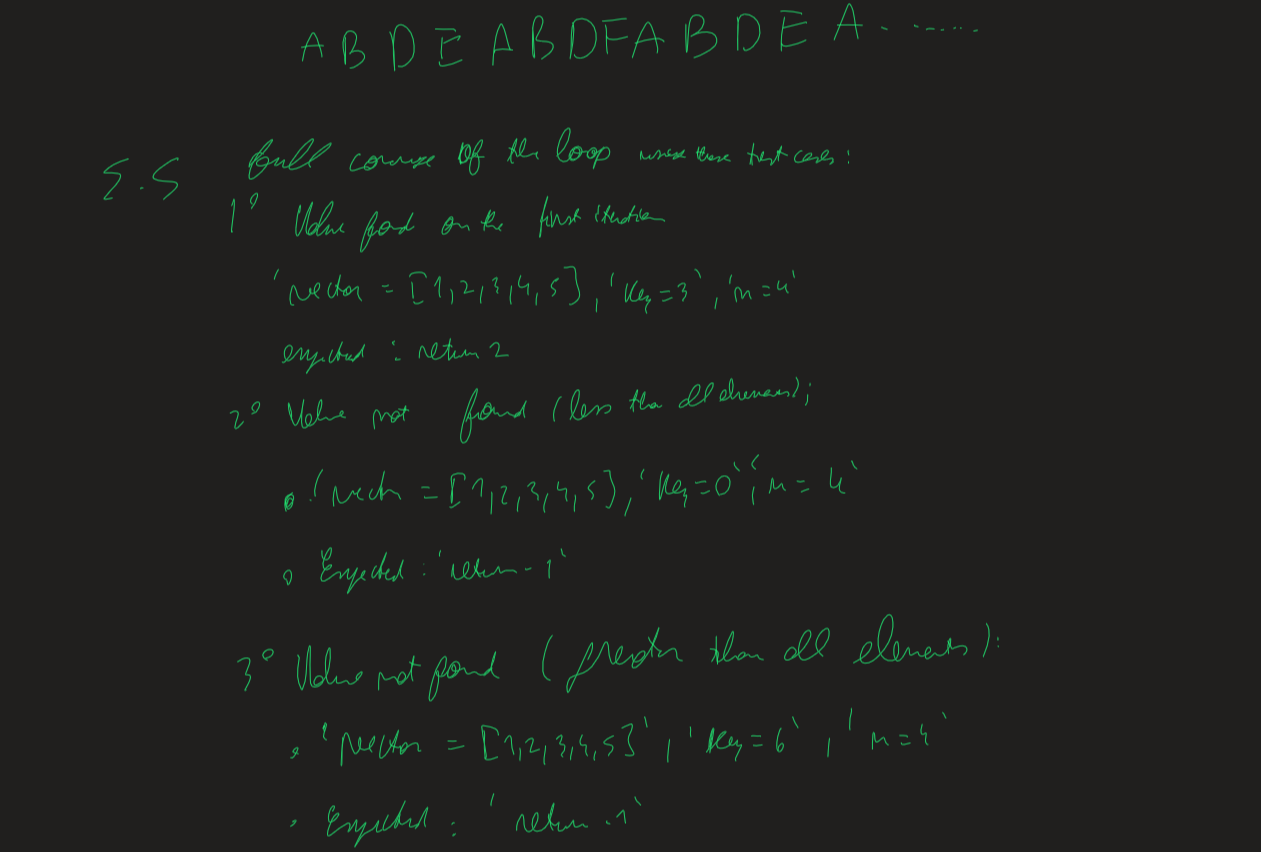 A B D E A B D F A B D E A - ......
5.5 full course of the loop these test cases:
1º Value found on the first iteration
'vector = [1,2,3,4,5], 'Key=3', 'n=4'
expected : return 2
2º Value not found (less than all elements);
• 'vector = [1,2,3,4,5], 'Key=0', 'n=4'
• Expected : 'return -1'
3º Value not found (greater than all elements):
• 'vector = [1,2,3,4,5]', 'Key=6', 'n=4'
• Expected : 'return -1'